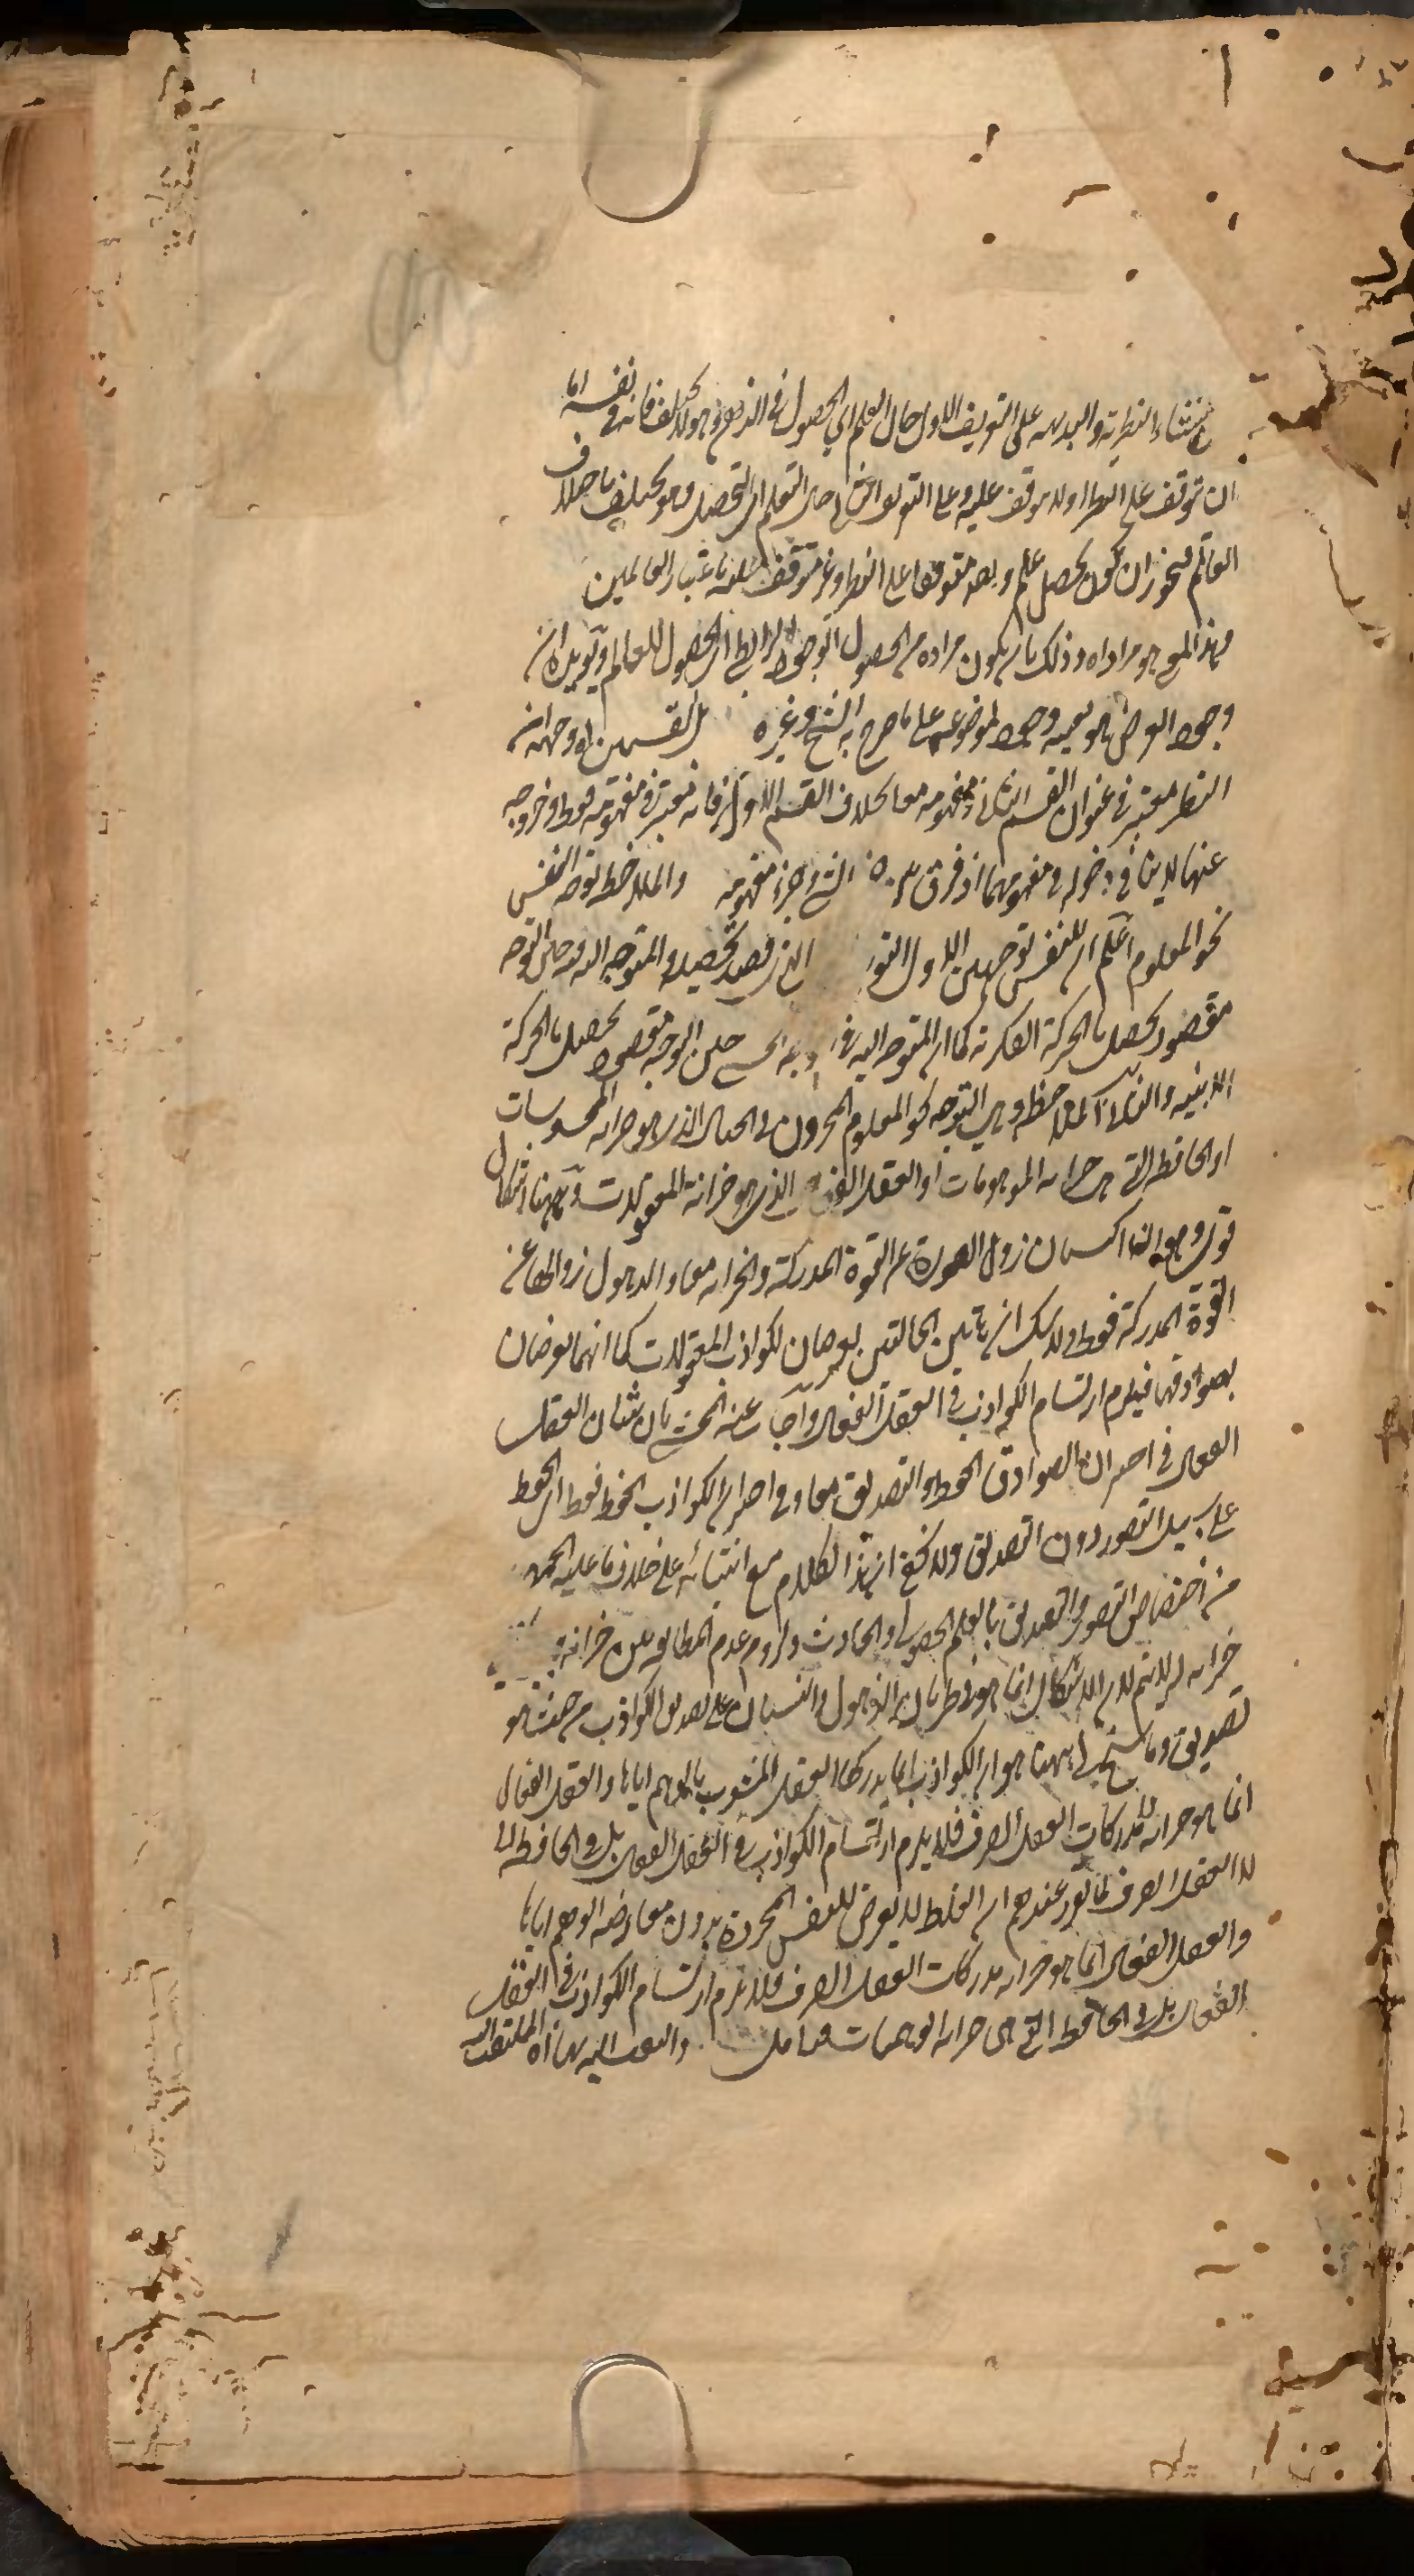 منشاء النظرية والبديهة على التعريف الاول حال العلم اي الحصول في الذهن وهو لا يختلف فانه في نفسه اما
ان توقف على النظر او لا يتوقف عليه وعلى الثاني حال التعلم اي التحصيل وهو يختلف باختلاف
العالم فيجوز ان يكون تحصيل علم واحد متوقفا على النظر وغير متوقف عليه باعتبار العالمين
فهذا المعنى هو مراداه وذلك بان يكون مراده من الحصول الوجود الرابطي اي الحصول للعالم ويؤيده ان
وجود العرض هو بعينه وجوده لموضوعه على ما صرح به الشيخ وغيره القسمين اه وجهه ان
النظر معتبر في عنوان القسم الثاني ومفهومه معا بخلاف القسم الاول فانه معتبر في مفهومه فقط وخروجه
عنهما لا ينافي دخوله في مفهومهما اذ فرق الشيء وجزء مفهومه والملاحظة توجه النفس
نحو المعلوم اعلم ان للنفس توجهين الاول التوجه الذي قصد تحصيله والمتوجه اليه فيه حين التوجه
مقصود يحصل بالحركة الفكرية كما ان المتوجه اليه في حين التوجه مقصود يحصل بالحركة
الاينية والثاني الملاحظة وهي التوجه نحو المعلوم المخزون في الخيال الذي هو خزانة المحسوسات
او الحافظة التي هي خزانة الموهومات او العقل الفعال الذي هو خزانة المعقولات وههنا اشكال
قوي وهو ان النسيان زوال الصورة عن القوة المدركة والخزانة معا والذهول زوالها عن
القوة المدركة فقط ولا شك ان هاتين الحالتين يعرضان لكواذب المعقولات كما انهما يعرضان
بصوادقها فيلزم ارتسام الكواذب في العقل الفعال واجاب عنه المحشي بان شان العقل
الفعال في اختزان الصوادق الحفظ والتصديق معا وفي اختزان الكواذب الحفظ فقط اي الحفظ
على سبيل التصور دون التصديق ولا يخفى ان هذا الكلام مع ابتنائه على خلاف ما عليه الجمهور
من اختصاص التصور والتصديق بالعلم الحصولي الحادث ولزوم عدم المطابقة بين خزانة و
خزانة له لا يتم لان الاشكال انما هو في طريان الذهول والنسيان على تصديق الكواذب من حيث هو
تصديق وما سنح لي ههنا هو ان الكواذب انما يدركها العقل المشوب بالوهم اياها والعقل الفعال
انما هو خزانة لمدركات العقل الصرف فلا يلزم ارتسام الكواذب في العقل الفعال بل في الحافظة
لا العقل الصرف لما تقرر عندهم ان الغلط لا يعرض للنفس المجردة بدون معارضة الوهم اياها
والعقل الفعال انما هو خزانة مدركات العقل الصرف فلا يلزم ارتسام الكواذب في العقل
الفعال بل في الحافظة التي هي خزانة الوهميات فتامل والملتفت اليه بها اه الملتفت اليه